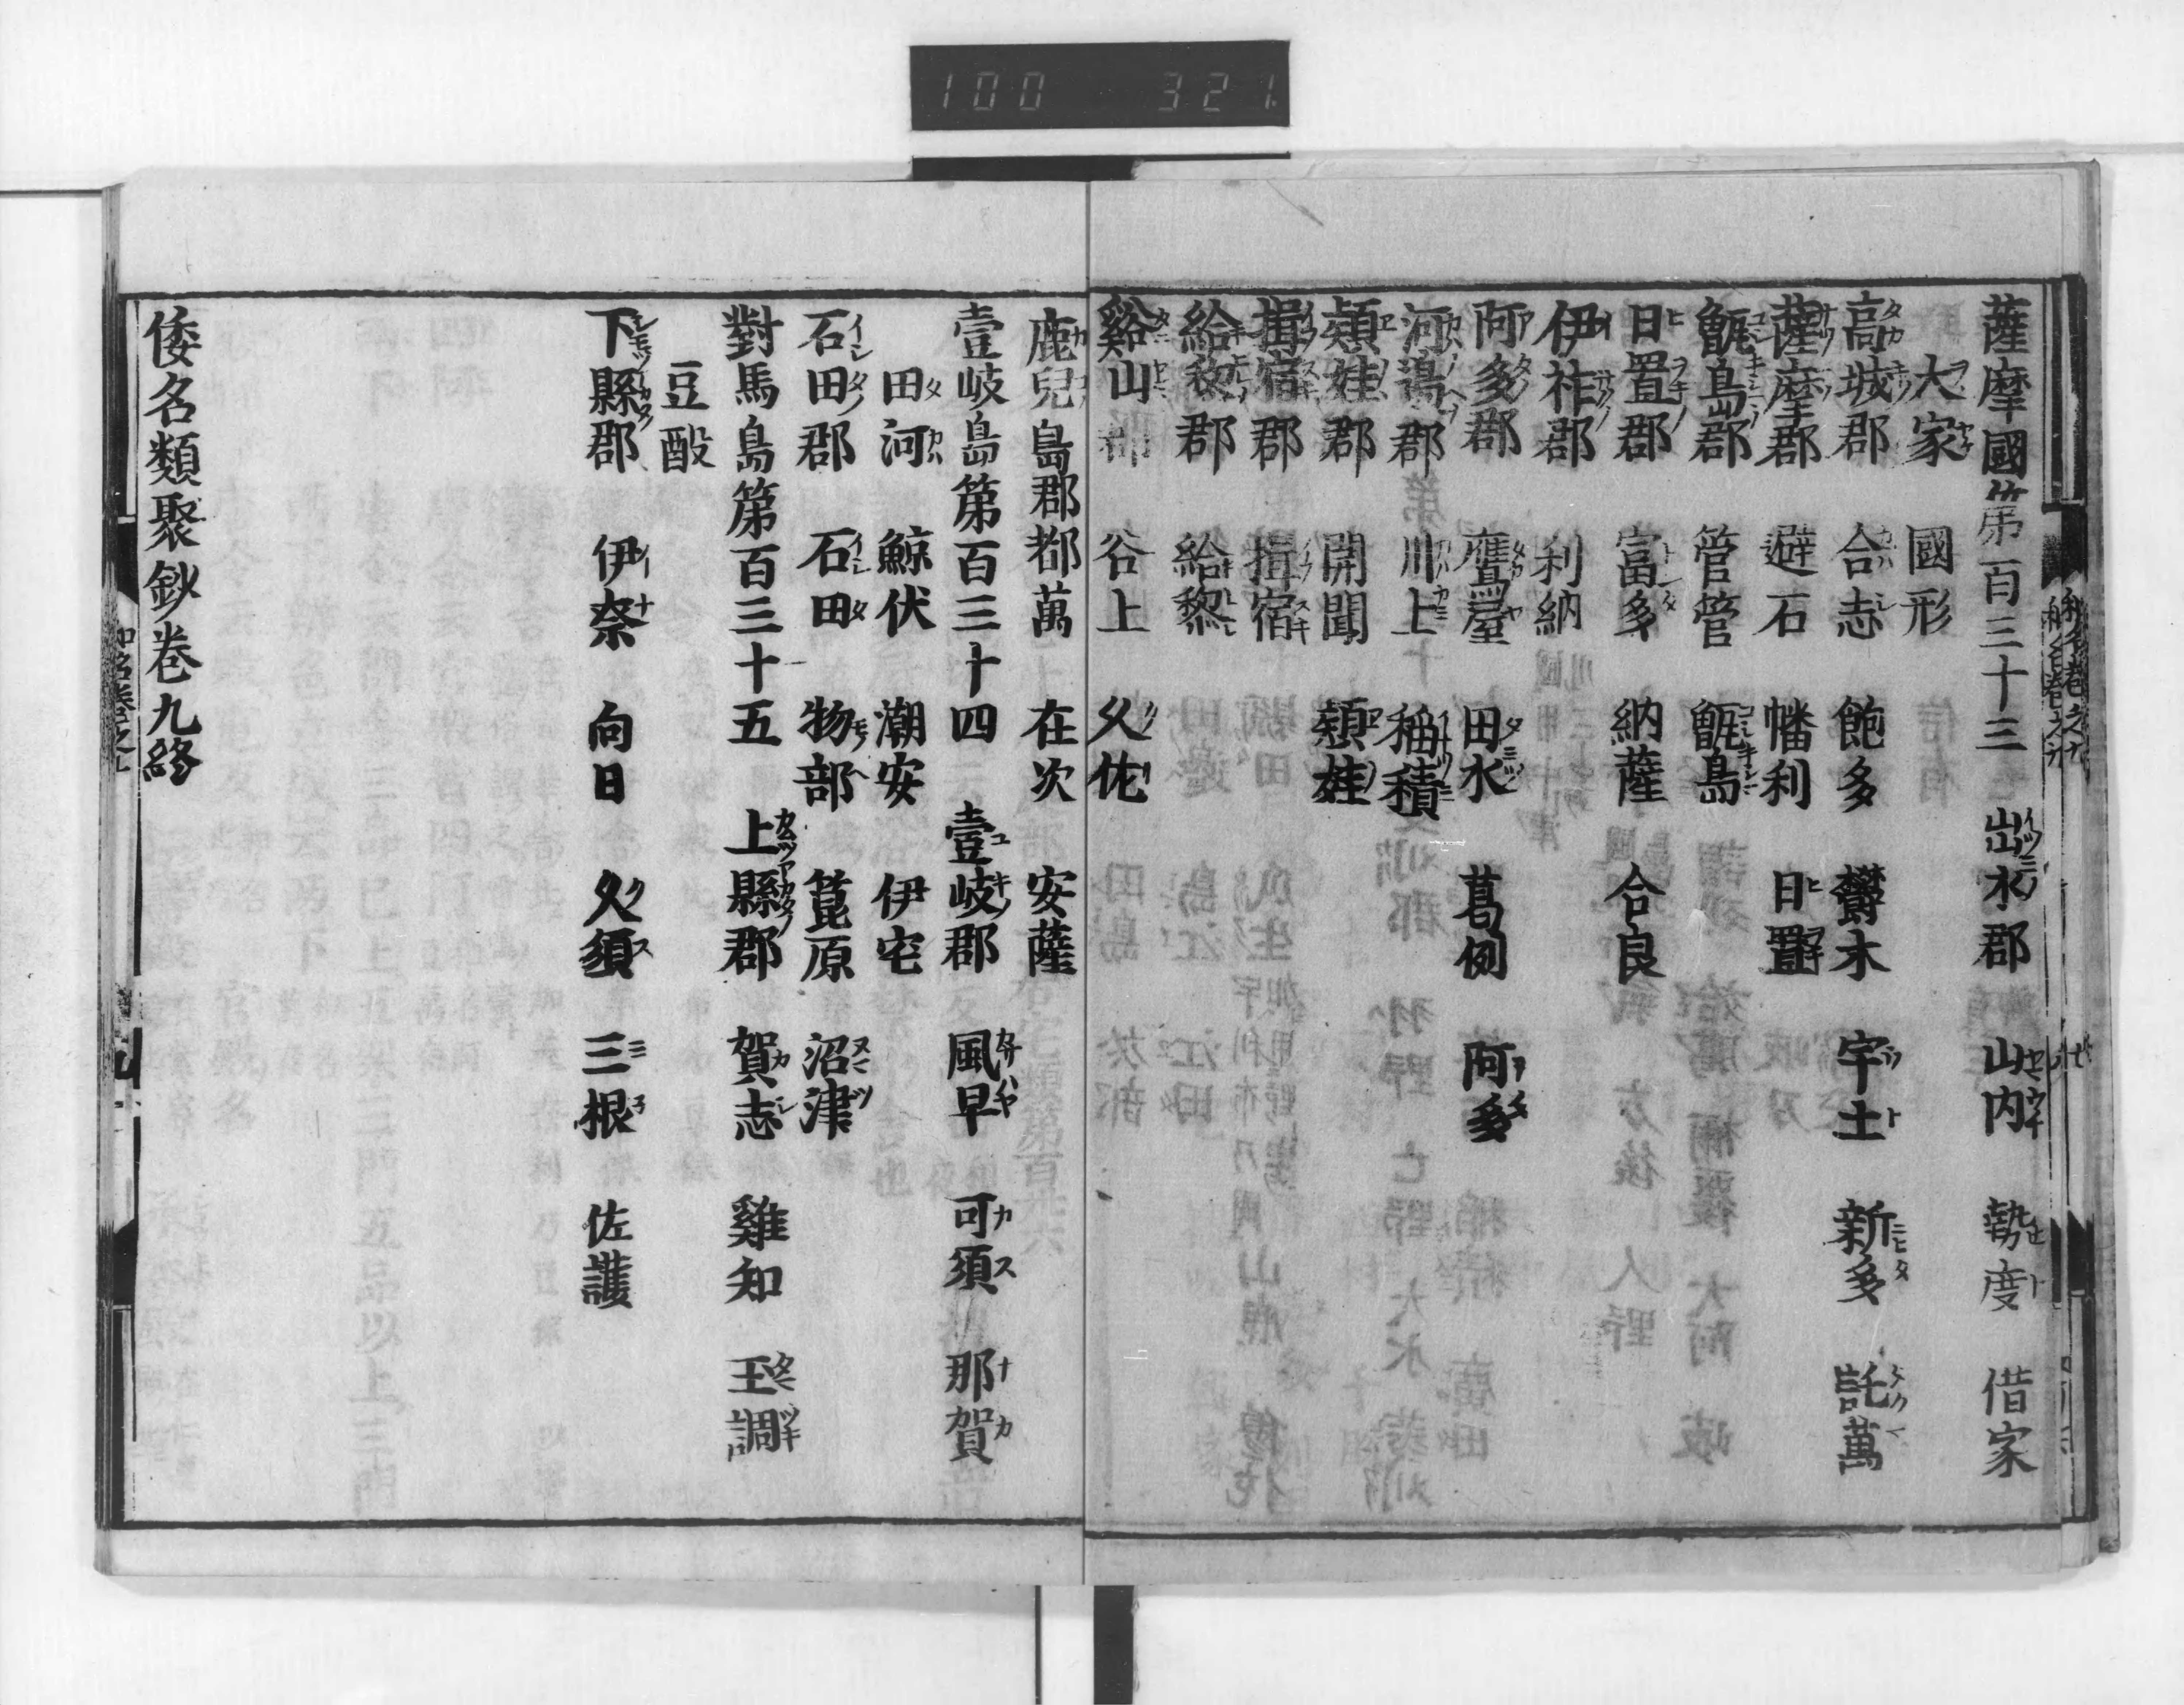 100 321
薩摩國第百三十三 出水郡 山内 勢度 借家
大家 國形
高城郡 合志 飽多 欝木 宇土 新多 託萬
薩摩郡 避石 幡利 日置
甑島郡 管管 甑島
日置郡 富多 納薩 合良
伊祚郡 利納
阿多郡 鷹屋 田水 葛例 阿多
河邊郡 川上 稲積
頴娃郡 開聞 頴娃
揖宿郡 揖宿
給黎郡 給黎
谿山郡 谷上 久佐
鹿兒島郡都萬 在次 安薩
壹岐島第百三十四 壹岐郡 風早 可須 那賀
田河 鯨伏 潮安 伊宅
石田郡 石田 物部 莒原 沼津
對馬島第百三十五 上縣郡 賀志 雞知 王調
豆酘
下縣郡 伊奈 向日 久須 三根 佐護
倭名類聚鈔卷九終